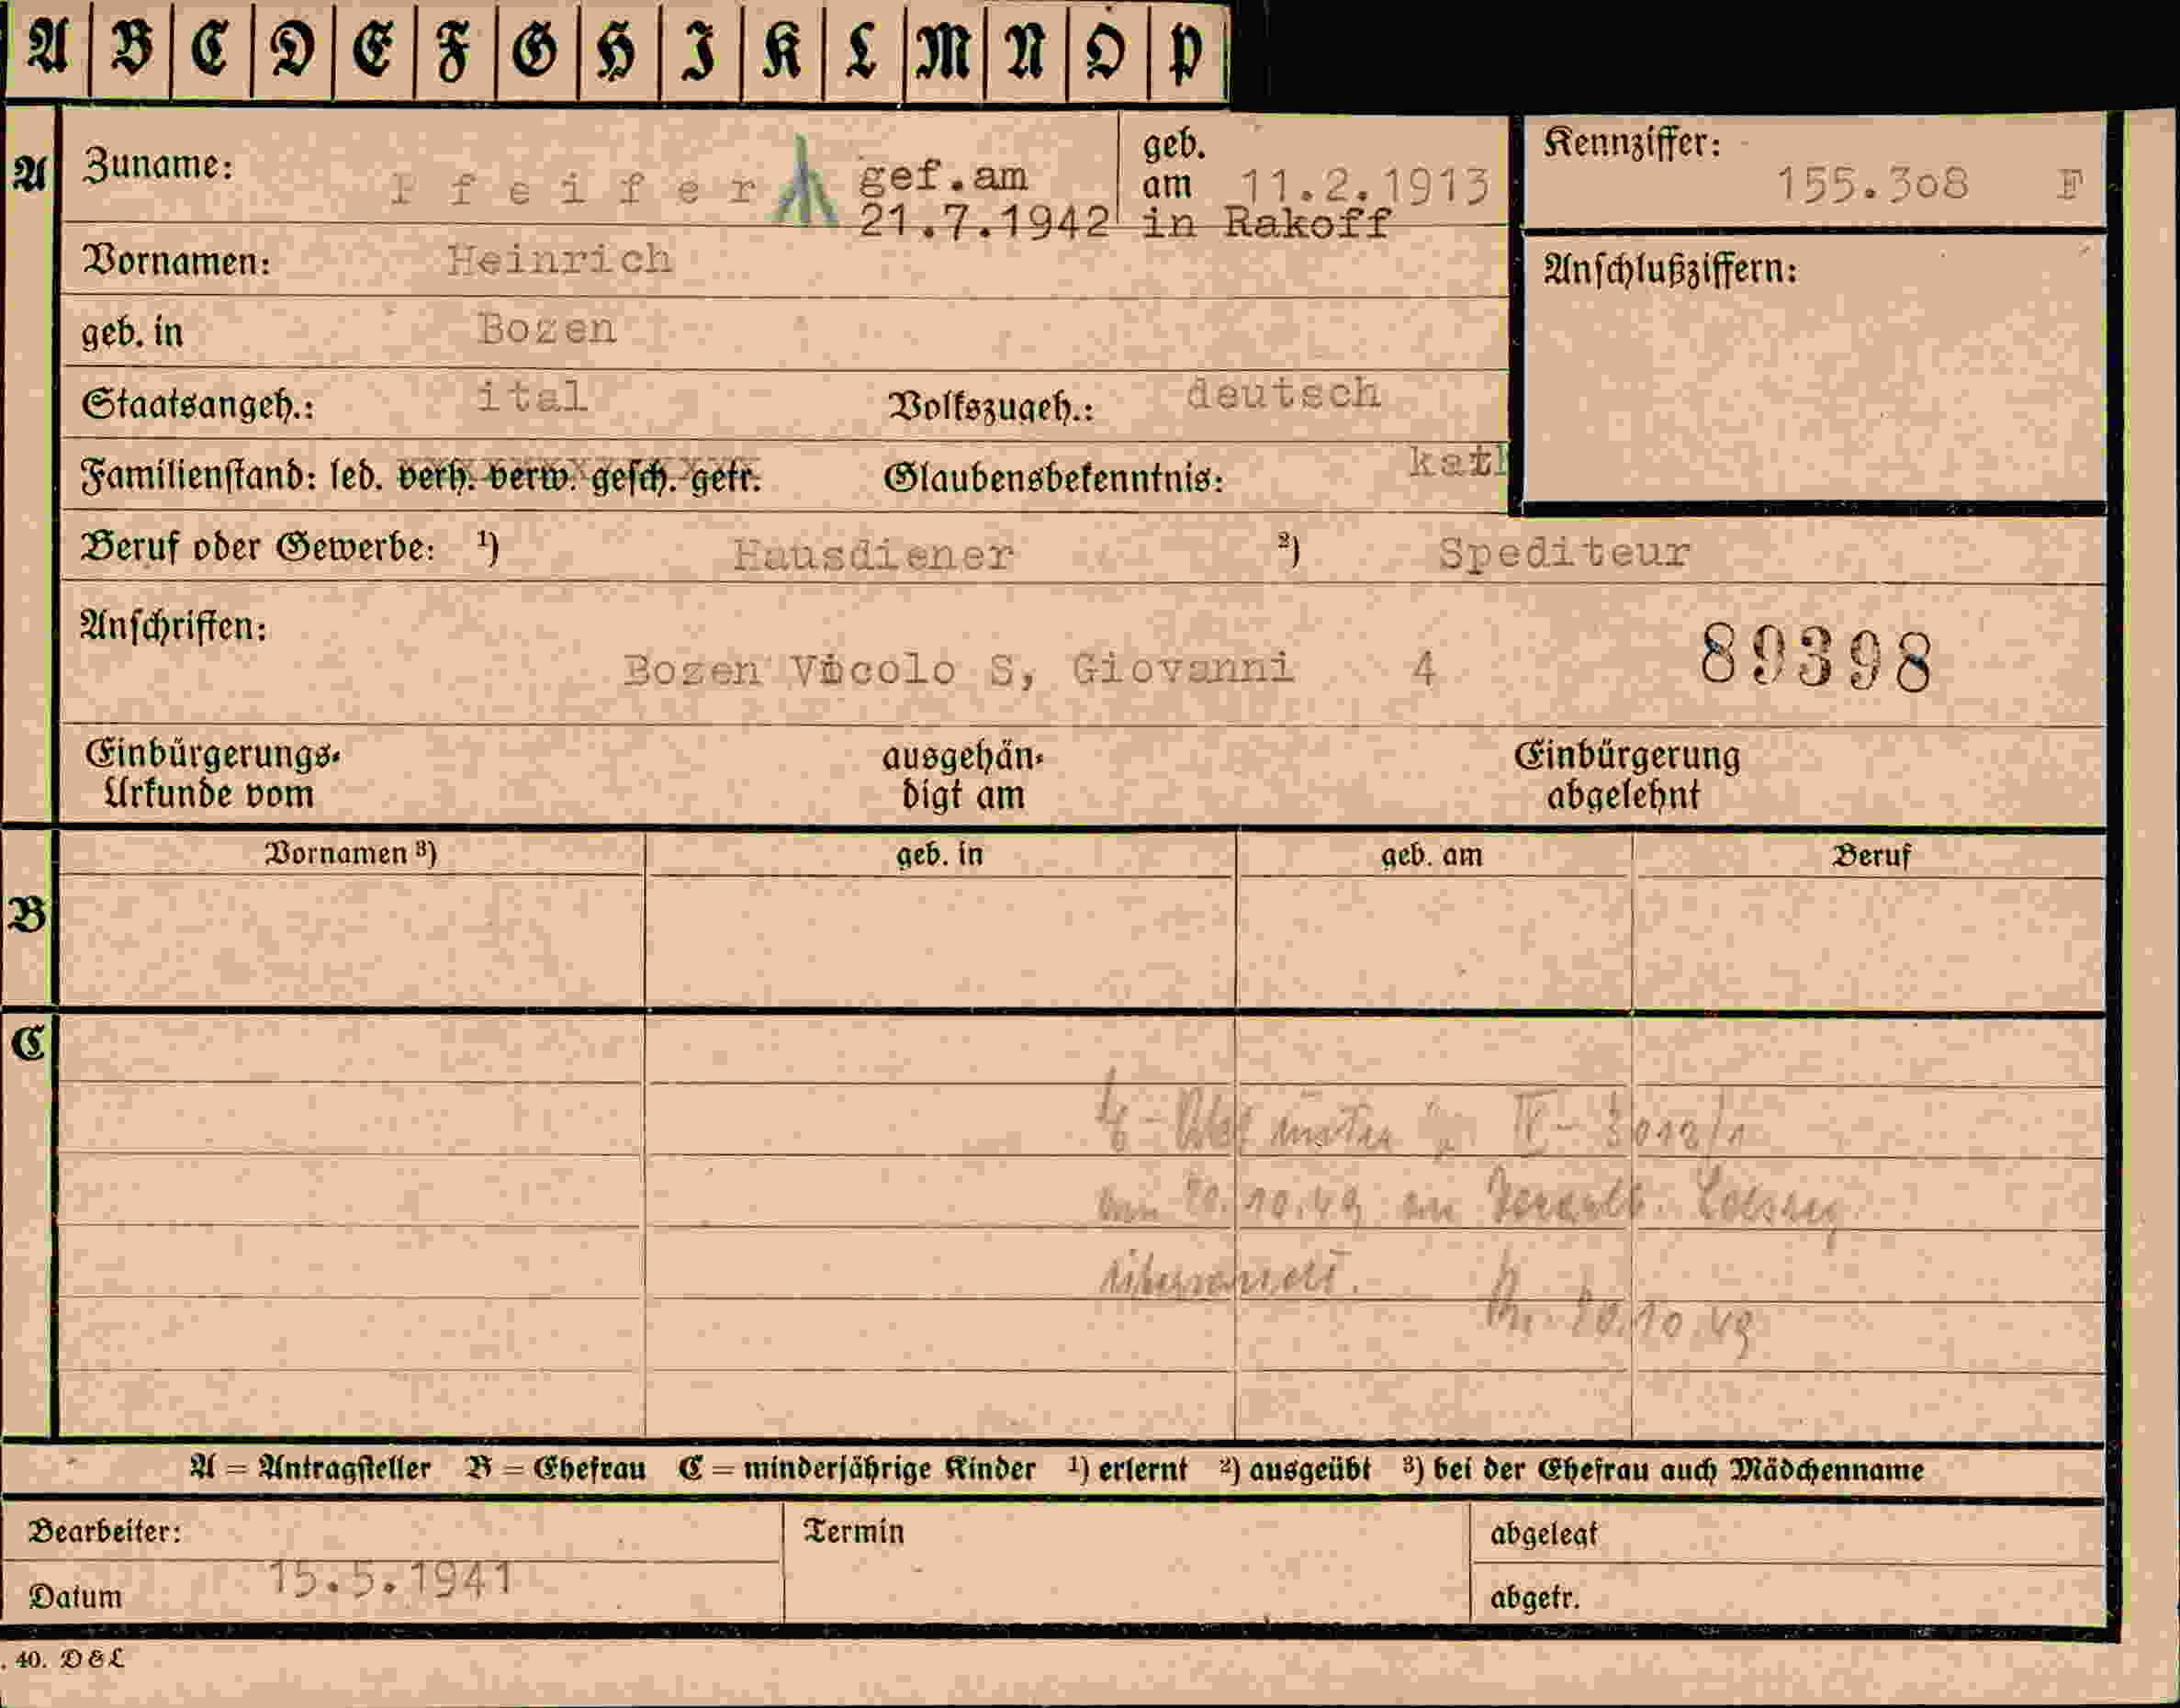 A B C D E F G H I K L M N O P
A Zuname: Pfeifer gef.am 21.7.1942 in Rakoff
geb. am 11.2.1913
Kennziffer: 155.308 F
Vornamen: Heinrich
Anschlußziffern:
geb. in Bozen
Staatsangeh.: ital Volkszugeh.: deutsch
Familienstand: led. verh. verw. gesch. getr. Glaubensbekenntnis: kath
Beruf oder Gewerbe: ¹) Hausdiener ²) Spediteur
Anschriften:
Bozen Vicolo S, Giovanni 4 89398
Einbürgerungs-Urkunde vom ausgehän-digt am Einbürgerung abgelehnt
Vornamen ³) geb. in geb. am Beruf
B
C
unter IV-3012/1
20.10.49 an
übersandt. 20.10.49
A = Antragsteller B = Ehefrau C = minderjährige Kinder ¹) erlernt ²) ausgeübt ³) bei der Ehefrau auch Mädchenname
Bearbeiter: Termin abgelegt
Datum 15.5.1941 abgetr.
. 40. D&L